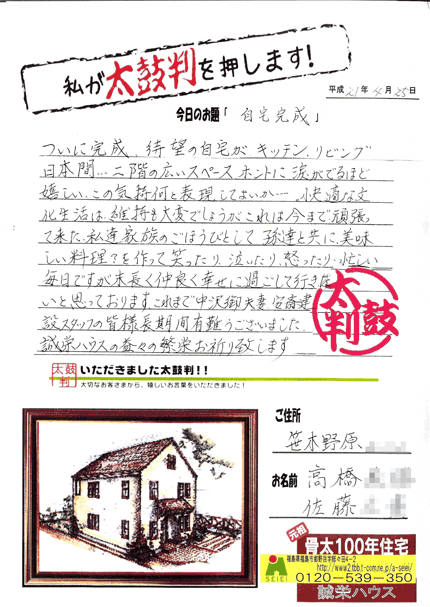 私が太鼓判を押します!
平成21年4月25日
今日のお題「 自宅完成 」
ついに完成、待望の自宅がキッチン、リビング
日本間…二階の広いスペース ホントに涙がでるほど
嬉しい、この気持何と表現してよいか…、快適な文
化生活は、維持も大変でしょうがこれは今まで頑張っ
て来た、私達家族のごほうびとして、孫達と共に、美味
しい料理を作って笑ったり、泣いたり、怒ったり、忙しい
毎日ですが末長く仲良く幸せに過ごして行きた
いと思っております。これまで中沢御夫妻安斎建
設スタッフの皆様長期間有難うございました
誠栄ハウスの益々の繁栄お祈り致します
太鼓判
太鼓判
いただきました太鼓判!!
大切なお客さまから、嬉しいお言葉をいただきました!
ご住所
笹木野原
お名前 高橋
佐藤
元祖
骨太100年住宅
SEIEI
0120-539-350
誠栄ハウス